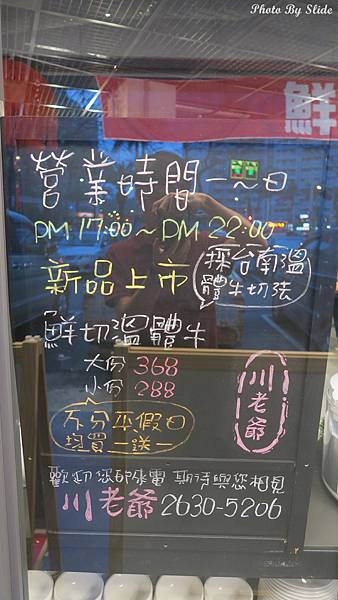 Photo By Slide
鮮
營業時間一~日
PM 17:00~PM 22:00
新品上市
採台南溫
體牛切法
鮮切溫體牛
大份 368
小份 288
不分平假日
均買一送一
川老爺
歡迎您即來電 期待與您相見
川老爺 2630-5206